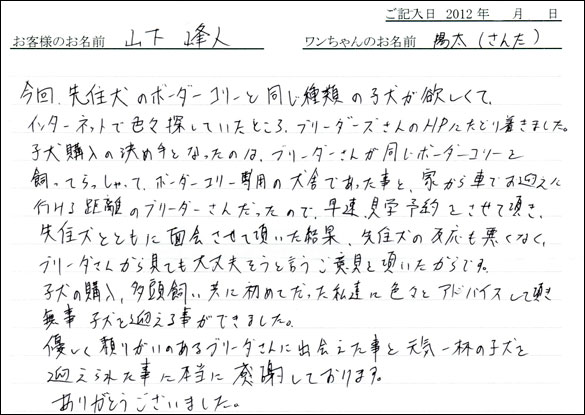 ご記入日 2012年 月 日
お客様のお名前 山下 峰人 ワンちゃんのお名前 陽太(さんた)
今回、先住犬のボーダーコリーと同じ種類の子犬が欲しくて、
インターネットで色々探していたところ、ブリーダーズさんのHPにたどり着きました。
子犬購入の決め手となったのは、ブリーダーさんが同じボーダーコリーを
飼ってらっしゃって、ボーダーコリー専用の犬舎であった事と、家から車でお迎えに
行ける距離のブリーダーさんだったので、早速、見学予約をさせて頂き、
先住犬とともに面会させて頂いた結果、先住犬の反応も悪くなく、
ブリーダさんから見ても大丈夫そうと言うご意見を頂いたからです。
子犬の購入、多頭飼い共に初めてだった私達に色々とアドバイスして頂き
無事子犬を迎える事ができました。
優しく頼りがいのあるブリーダさんに出会えた事と元気一杯の子犬を
迎えられた事に本当に感謝しております。
ありがとうございました。